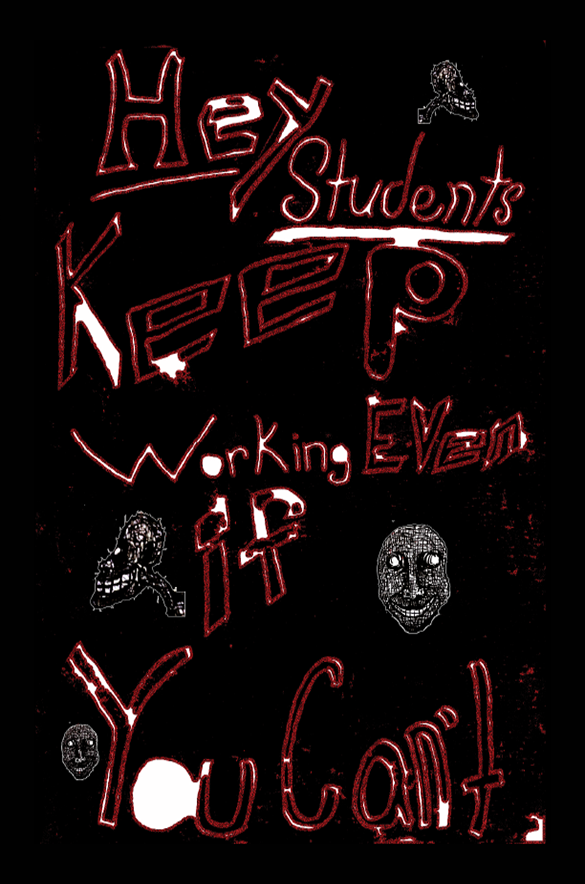 Hey
Students
Keep
Working Even
if
You Can't